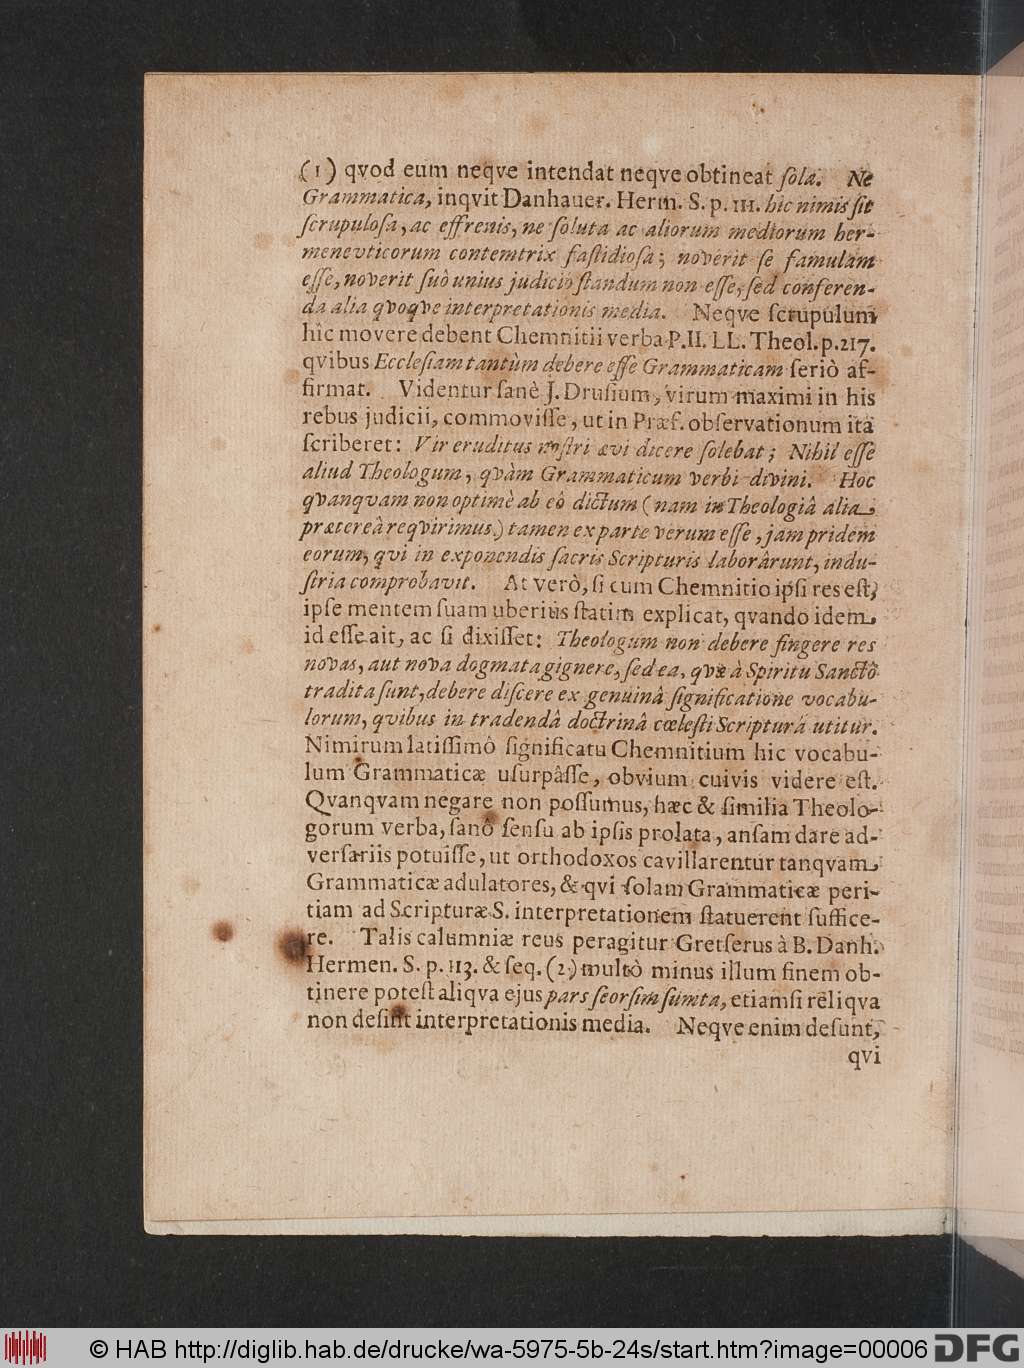 (1) qvod eum neqve intendat neqve obtineat ſola. Ne
Grammatica, inqvit Danhauer. Herm. S. p. 111. hic nimis ſit
ſcrupuloſa, ac effrenis, ne ſoluta ac aliorum mediorum her-
menevticorum contemtrix faſtidioſa; noverit ſe famulam
eſſe, noverit ſuô unius judiciô ſtandum non eſſe, ſed conferen-
da alia qvoqve interpretationis media. Neqve ſcrupulum
hîc movere debent Chemnitii verba P. II. LL. Theol. p. 217.
qvibus Eccleſiam tantùm debere eſſe Grammaticam ſeriò af-
firmat. Videntur ſanè J. Druſium, virum maximi in his
rebus judicii, commoviſſe, ut in Præf. obſervationum ita
ſcriberet: Vir eruditus noſtri ævi dicere ſolebat; Nihil eſſe
aliud Theologum, qvàm Grammaticum verbi divini. Hoc
qvanqvam non optimè ab eô dictum (nam in Theologiâ alia
præterea reqvirimus.) tamen ex parte verum eſſe, jam pridem
eorum, qvi in exponendis ſacris Scripturis laborârunt, indu-
ſtria comprobavit. At verò, ſi cum Chemnitio ipſi res eſt,
ipſe mentem ſuam uberius ſtatim explicat, qvando idem
id eſſe ait, ac ſi dixiſſet: Theologum non debere fingere res
novas, aut nova dogmata gignere, ſed ea, qvæ à Spiritu Sanctô
tradita ſunt, debere diſcere ex genuinâ ſignificatione vocabu-
lorum, qvibus in tradendâ doctrinâ cœleſti Scriptura utitur.
Nimirum latiſſimô ſignificatu Chemnitium hic vocabu-
lum Grammaticæ uſurpâſſe, obvium cuivis videre eſt.
Qvanqvam negare non poſſumus, hæc & ſimilia Theolo-
gorum verba, ſanô ſenſu ab ipſis prolata, anſam dare ad-
verſariis potuiſſe, ut orthodoxos cavillarentur tanqvam
Grammaticæ adulatores, & qvi ſolam Grammaticæ peri-
tiam ad Scripturæ S. interpretationem ſtatuerent ſuffice-
re. Talis calumniæ reus peragitur Gretſerus à B. Danh.
Hermen. S. p. 113. & ſeq. (2.) multò minus illum finem ob-
tinere poteſt aliqva ejus pars ſeorſim ſumta, etiamſi reliqva
non deſint interpretationis media. Neqve enim deſunt,
qvi
© HAB http://diglib.hab.de/drucke/wa-5975-5b-24s/start.htm?image=00006 DFG